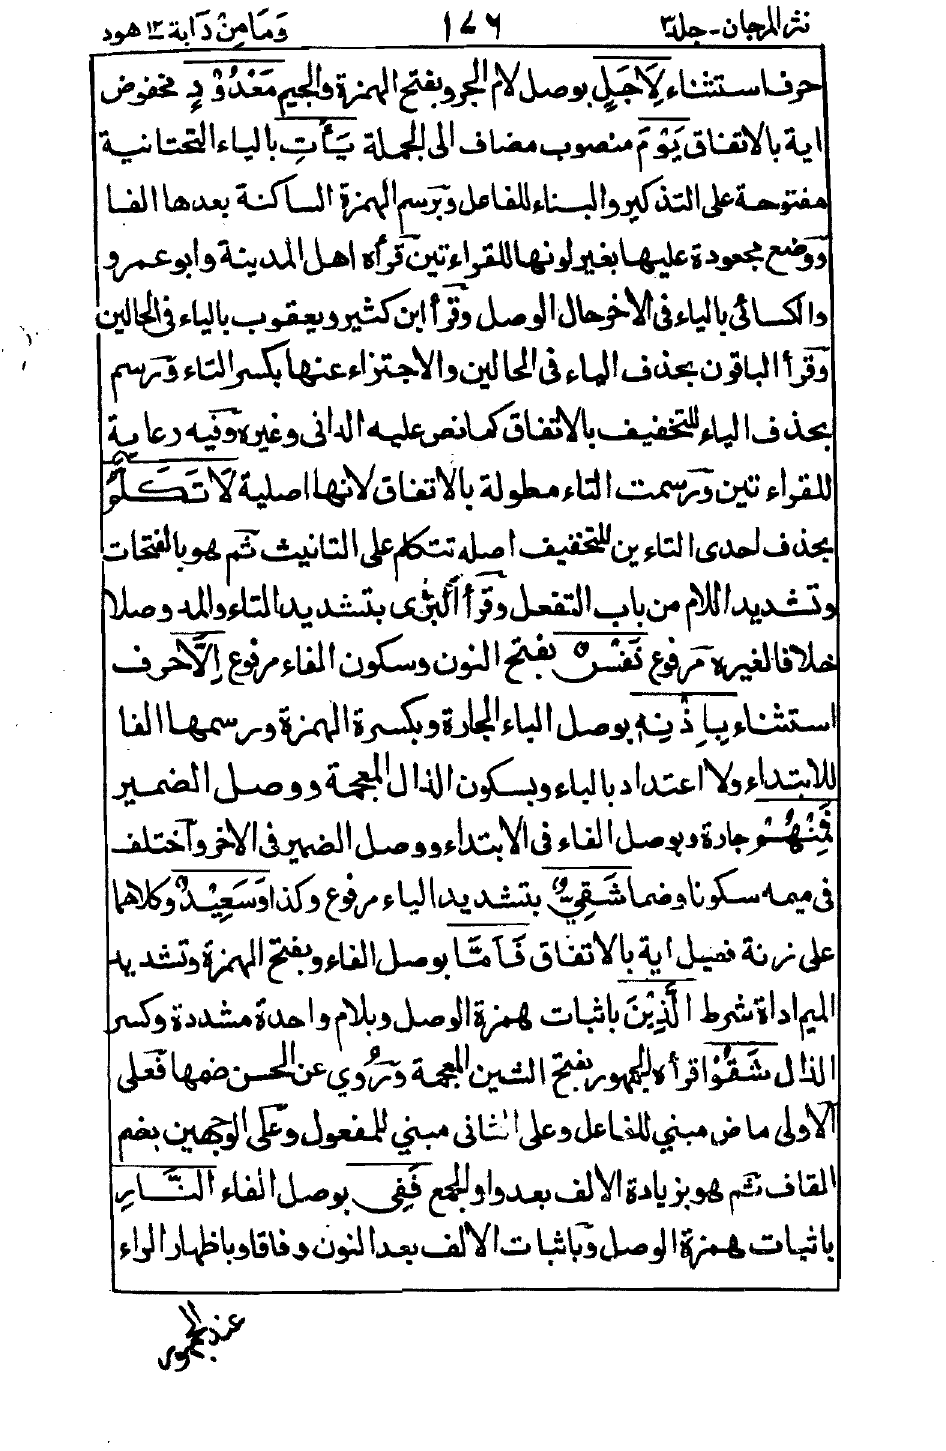 نثر المرجان - جلد ٣ ١٧٦ وَمَا مِنْ دَابة ١٢ هود
حرف استثناء لِاَجَلٍ بوصل لام الجر وبفتح الهمزة والجيم مَعْدُوْدٍ مخفوض
اية بالاتفاق يَوْمَ منصوب مضاف الى الجملة يَأْتِ بالياء التحتانية
مفتوحة على التذكير والبناء للفاعل وبرسم الهمزة الساكنة بعدها الفا
ووضع مجعودة عليها بغير لونها للقراءتين قرأه اهل المدينة وابو عمرو
والكسائى بالياء فى الاخر حال الوصل وقرأ ابن كثير ويعقوب بالياء فى الحالين
وقرأ الباقون بحذف الياء فى الحالين والاجتزاء عنها بكسر التاء ورسم
بحذف الياء للتخفيف بالاتفاق كما نص عليه الدانى وغيره وفيه رعاية
للقراءتين ورسمت التاء مطولة بالاتفاق لانها اصلية لَا تَكَلَّمُ
بحذف احدى التاءين للتخفيف اصله تتكلم على التانيث ثم هو بالفتحات
وتشديد اللام من باب التفعل وقرأ البزى بتشديد التاء والمد وصلا
خلافا لغيره مرفوع نَفْسٌ بفتح النون وسكون الفاء مرفوع اِلَّا حرف
استثناء بِاِذْنِهٖ بوصل الباء الجارة وبكسرة الهمزة ورسمها الفا
للابتداء ولا اعتداد بالباء وبسكون الذال المعجمة ووصل الضمير
فَمِنْهُمْ جارة وبوصل الفاء فى الابتداء ووصل الضمير فى الاخر واختلف
فى ميمه سكونا وضما شَقِيٌّ بتشديد الياء مرفوع وكذا وَسَعِيْدٌ وكلاهما
على زنة فعيل اية بالاتفاق فَاَمَّا بوصل الفاء وبفتح الهمزة وتشديد
الميم اداة شرط الَّذِيْنَ باثبات همزة الوصل وبلام واحدة مشددة وكسر
الذال شَقُوْا قرأه الجمهور بفتح الشين المعجمة ورُوي عن الحسن ضمها فعلى
الاولى ماض مبني للفاعل وعلى الثانى مبني للمفعول وعلى الوجهين بضم
القاف ثم هو بزيادة الالف بعد واو الجمع فَفِى بوصل الفاء النَّارِ
باثبات همزة الوصل وباثبات الالف بعد النون وفاقا وباظهار الراء
عند الجمهور